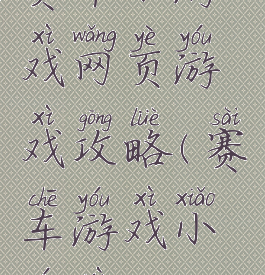 xì wǎng yè yóu
戏网页游
xì gōng lüè sài
戏攻略(赛
chē yóu xì xiǎo
车游戏小